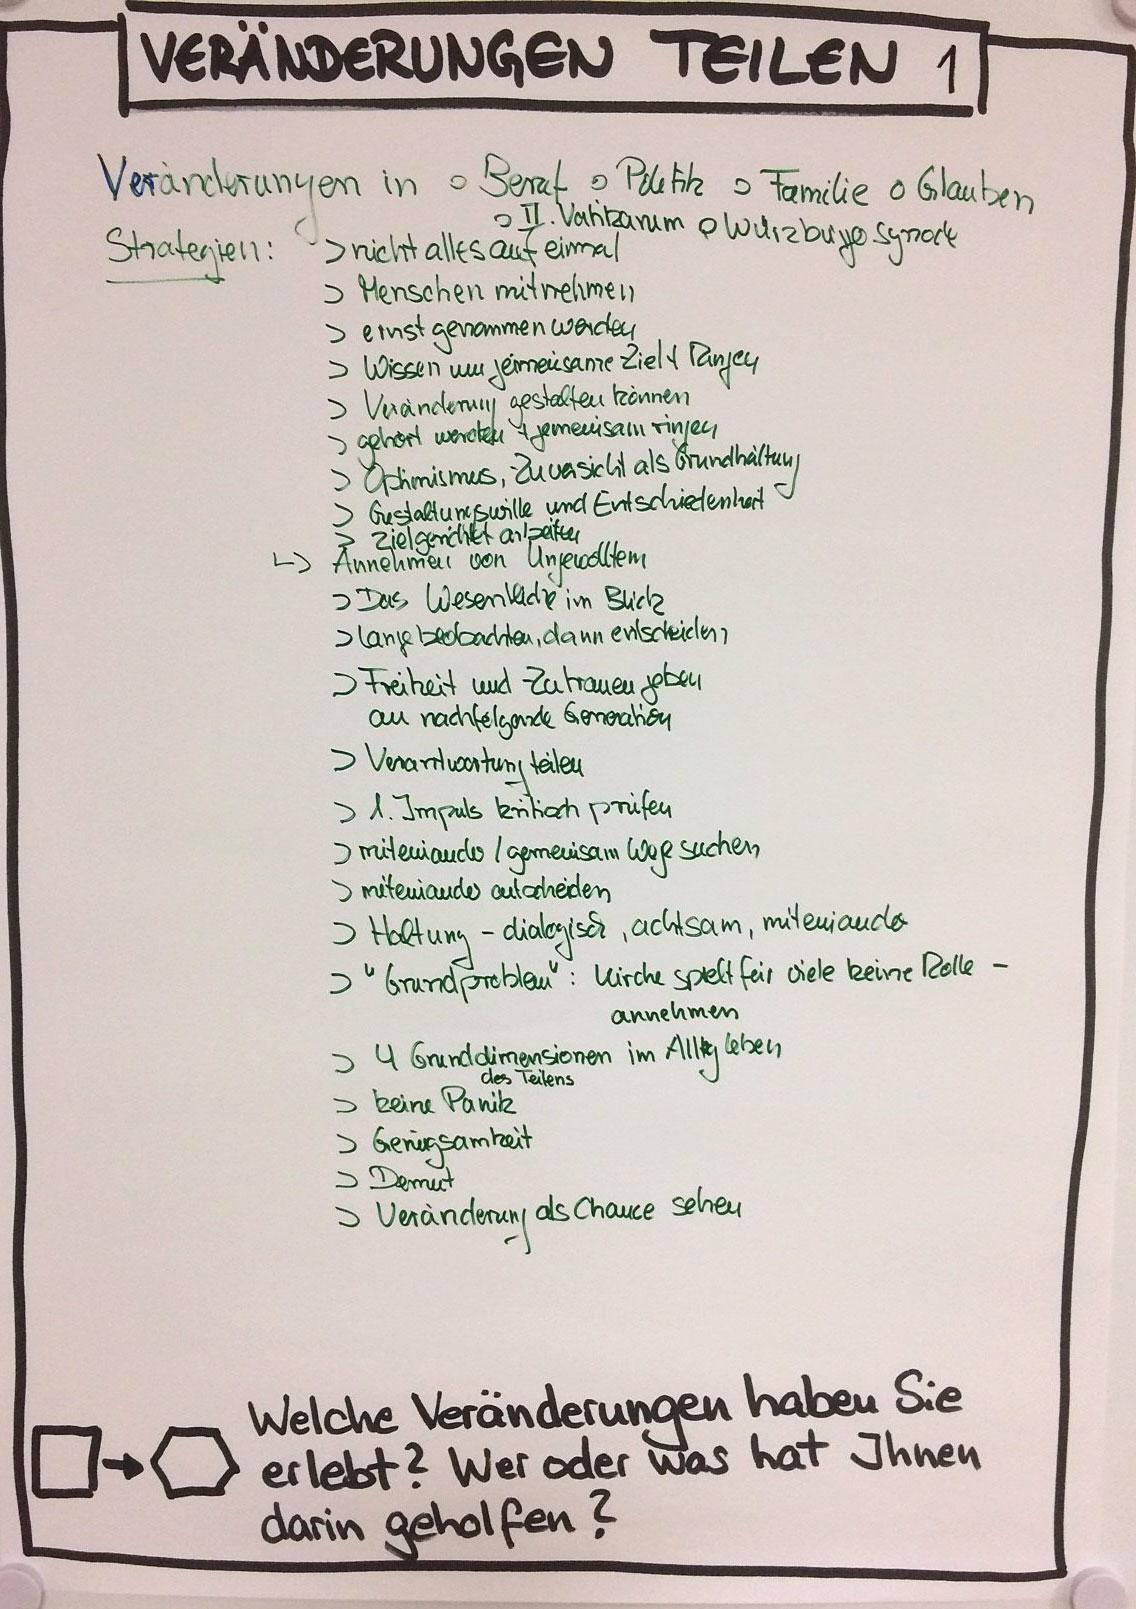 VERÄNDERUNGEN TEILEN 1
Veränderungen in o Beruf o Politik o Familie o Glauben
o II. Vatikanum o Würzburger Synode
Strategien: > nicht alles auf einmal
> Menschen mitnehmen
> ernst genommen werden
> Wissen um gemeinsame Ziel +
> Veränderung gestalten können
> gehört werden + gemeinsam ringen
> Optimismus, Zuversicht als Grundhaltung
> Gestaltungswille und Entschiedenheit
> zielgerichtet arbeiten
↳ Annehmen von Ungewolltem
> Das Wesentliche im Blick
> lange beobachten, dann entscheiden
> Freiheit und Zutrauen geben
an nachfolgende Generation
> Verantwortung teilen
> 1. Impuls kritisch prüfen
> miteinander / gemeinsam Wege suchen
> miteinander entscheiden
> Haltung - dialogisch, achtsam, miteinander
> "Grundproblem": Kirche spielt für viele keine Rolle -
annehmen
> 4 Grunddimensionen im Alltag leben
des Teilens
> keine Panik
> Genügsamkeit
> Demut
> Veränderung als Chance sehen
Welche Veränderungen haben Sie
erlebt? Wer oder was hat Ihnen
darin geholfen?